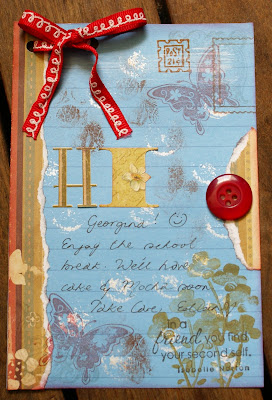 POST
HI
Georgina! ☺
Enjoy the school
break. We'll have
cake & Mocha soon.
Take Care.
in a
friend you find
your second self.
Isabelle Norton